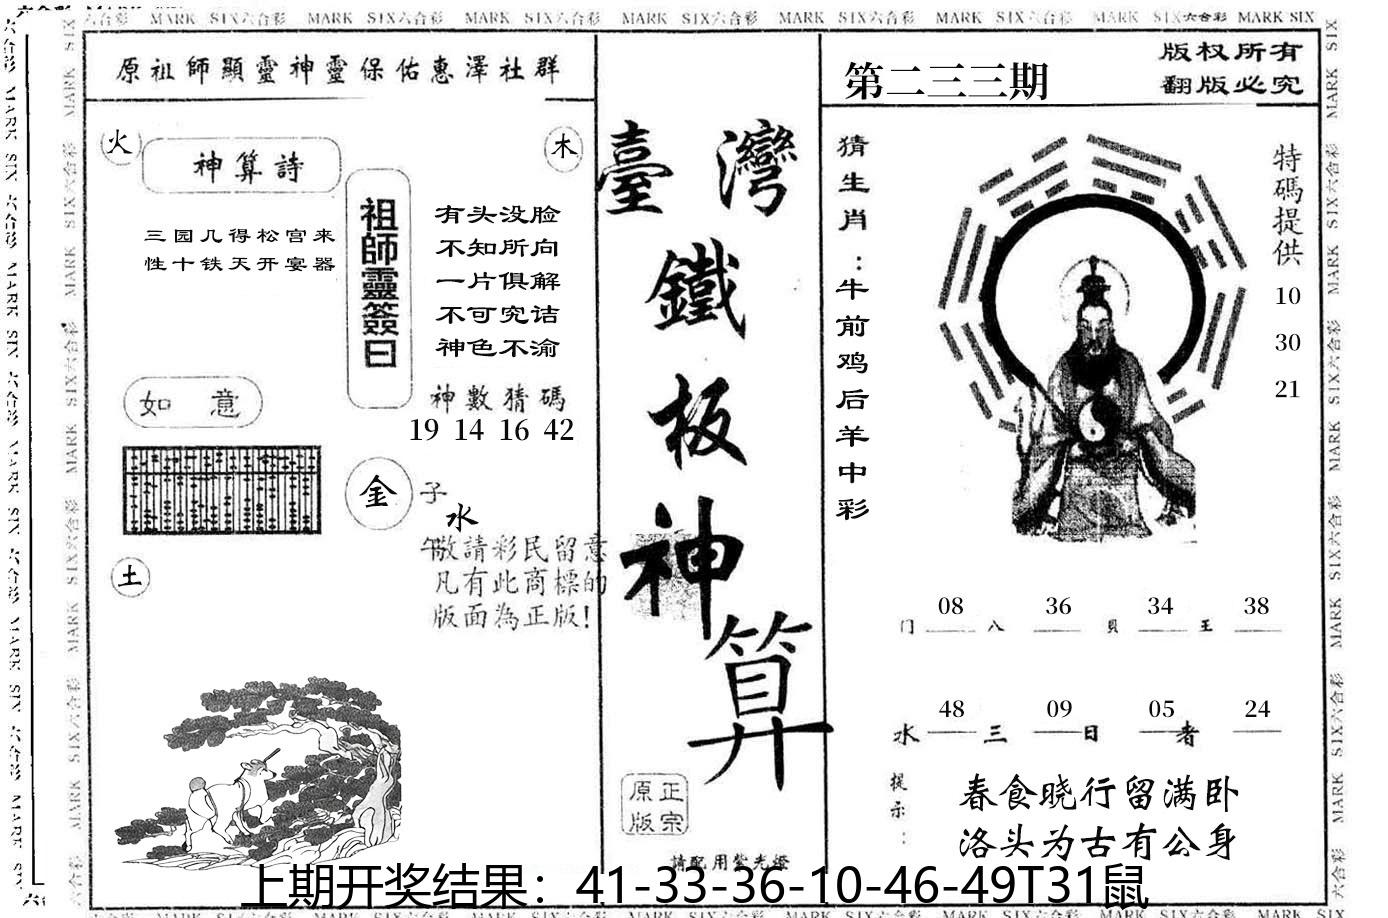 六合彩 MARK SIX六合彩 MARK SIX六合彩 MARK SIX六合彩 MARK SIX六合彩 MARK SIX六合彩 MARK SIX六合彩 MARK SIX六合彩 MARK SIX
原祖師顯靈神靈保佑惠澤社群
火
木
神算詩
三园几得松宫来
性十铁天开宴器
祖師靈簽曰
有头没脸
不知所向
一片俱解
不可究诘
神色不渝
神數猜碼
19 14 16 42
如意
金
子
水
午
土
敬請彩民留意
凡有此商標的
版面為正版!
臺灣
鐵
板
神
算
正宗
原版
請配用紫光燈
第二三三期
版权所有
翻版必究
猜生肖:牛前鸡后羊中彩
特碼提供
10
30
21
08 36 34 38
门 八 贝 王
48 09 05 24
水 三 日 者
提示:
春食晓行留满卧
洛头为古有公身
上期开奖结果：41-33-36-10-46-49T31鼠